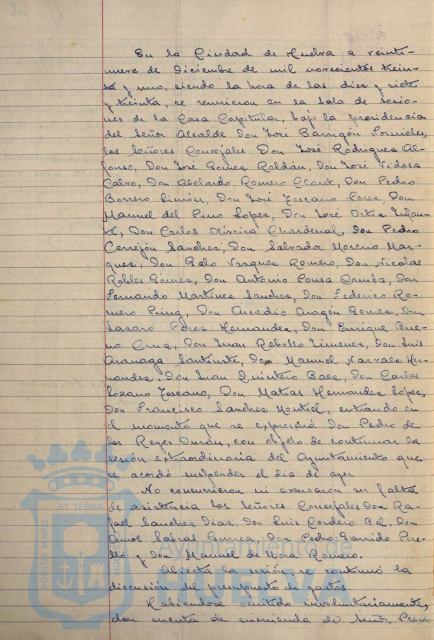 En la Ciudad de Huelva a veinti-
nueve de Diciembre de mil novecientos trein-
ta y uno, siendo la hora de las diez y siete
y treinta, se reunieron en la Sala de Sesio-
nes de la Casa Capitular, bajo la presidencia
del Señor Alcalde Don José Barrigón Fornieles,
los Señores Concejales Don José Rodriguez Al-
fonso, Don José Gomez Roldán, Don José Vidosa
Calvo, Don Abelardo Romero Claret, Don Pedro
Borrero Limón, Don José Toscano Perez, Don
Manuel del Pino Lopez, Don José Ortiz Infan-
te, Don Carlos Oliveira Chardenal, Don Pedro
Cerrejón Sanchez, Don Salvador Moreno Mar-
quez, Don Galo Vazquez Romero, Don Nicolas
Robles Gómez, Don Antonio Pousa Camba, Don
Fernando Martinez Sanchez, Don Federico Ro-
mero Don Arcadio Aragón Gomez, Don
Lazaro Pérez Hernandez, Don Enrique Bue-
no Cruz, Don Juan Rebollo Jimenez, Don Luis
Don Manuel Narvaez Her-
nandez, Don Juan Quintero Baez, Don Carlos
Lozano Toscano, Don Matías Hernandez López,
Don Francisco Sanchez Montiel, entrando en
el momento que se expresará Don Pedro de
los Reyes Durán, con objeto de continuar la
sesión extraordinaria del Ayuntamiento que
se acordó suspender el dia de ayer.
No concurrieron ni excusaron su falta
de asistencia los Señores Concejales Don Ra-
fael Sanchez Diaz, Don Luis Cordero Bel, Don
Amos Sabrás Gurrea, Don Pedro Garrido Pere-
lló y Don Manuel de Mora Romero.
Abierta la sesión, se continuó la
discusión del presupuesto de gastos.
Habiendose omitido involuntariamente,
dar cuenta de enmienda del Señor